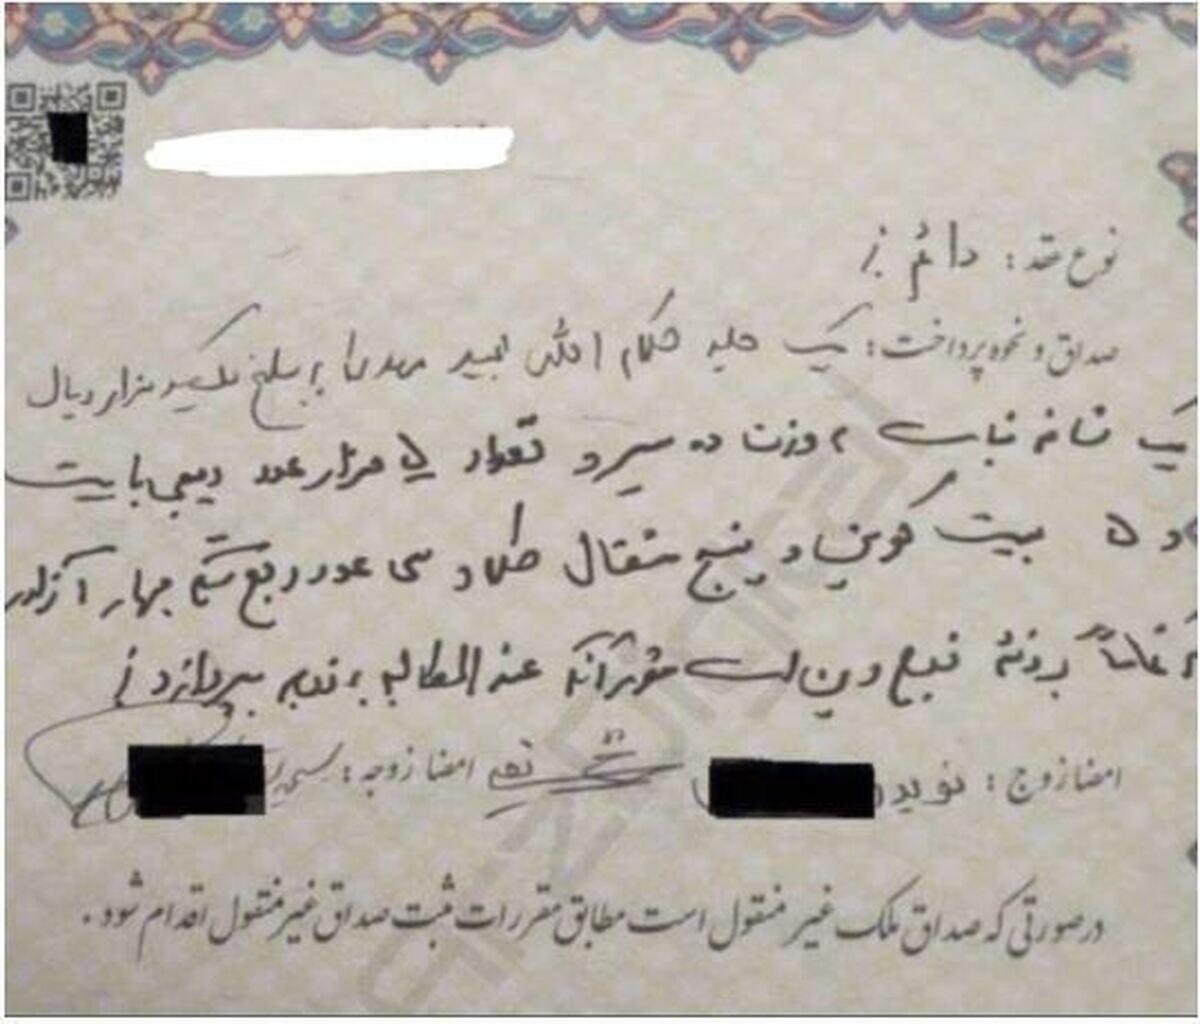 نوع عقد: دائم
صداق و نحوه پرداخت: یک جلد کلام الله مجید مهدیا به مبلغ یکصد هزار ریال
یک شاخه نبات به وزن ده سیر و تعداد ۵ هزار عدد
و ۵ بیت کوین و پنج مثقال طلا و سی عدد ربع سکه بهار آزادی
که تماماً بر ذمه زوج دین است مقرر آنکه عند المطالبه به زوجه بپردازد
امضا زوج: نوید
امضا زوجه:
در صورتی که صداق ملک غیر منقول است مطابق مقررات ثبت صداق غیر منقول اقدام شود.